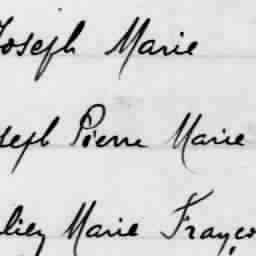 Joseph Marie
seph Pierre Marie
lien Marie Franço